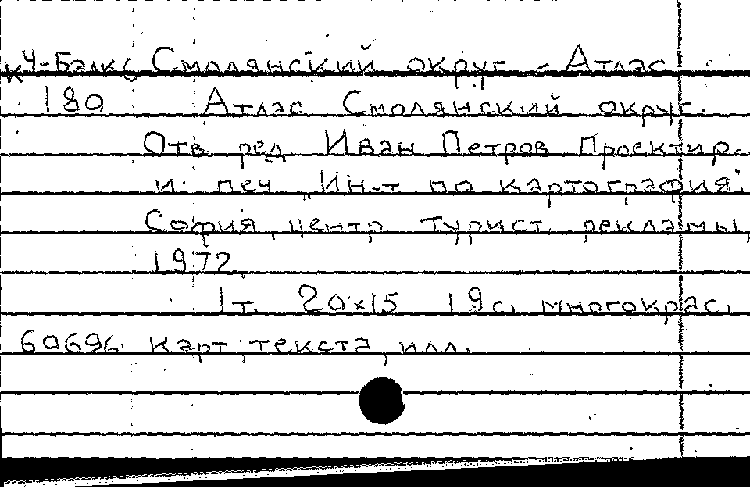 К Ч-Балк Смолянский округ - Атлас
180 Атлас Смолянский округ.
Отв. ред. Иван Петров Проектир.
и печ. Ин-т по картография.
София, центр турист. рекламы,
1972.
1 т. 20x15 19 с. многокрас.
60696 карт, текста, илл.